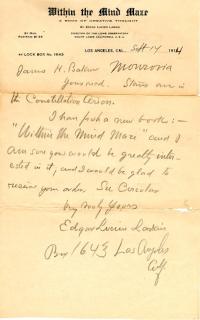 Within the Mind Maze
A BOOK OF CREATIVE THOUGHT
BY EDGAR LUCIEN LARKIN
DIRECTOR OF THE LOWE OBSERVATORY
BY MAIL
LOS ANGELES, CAL., Sept 14 191
James H. Baker Monrovia
Stars are in
the Constellation Orion.
I have just a new book:—
"Within the Mind Maze" and I
am sure you would be greatly inter-
ested in it, and I would be glad to
receive your order. See Circular
Very truly yours
Edgar Lucien Larkin
Box 1643 Los Angeles